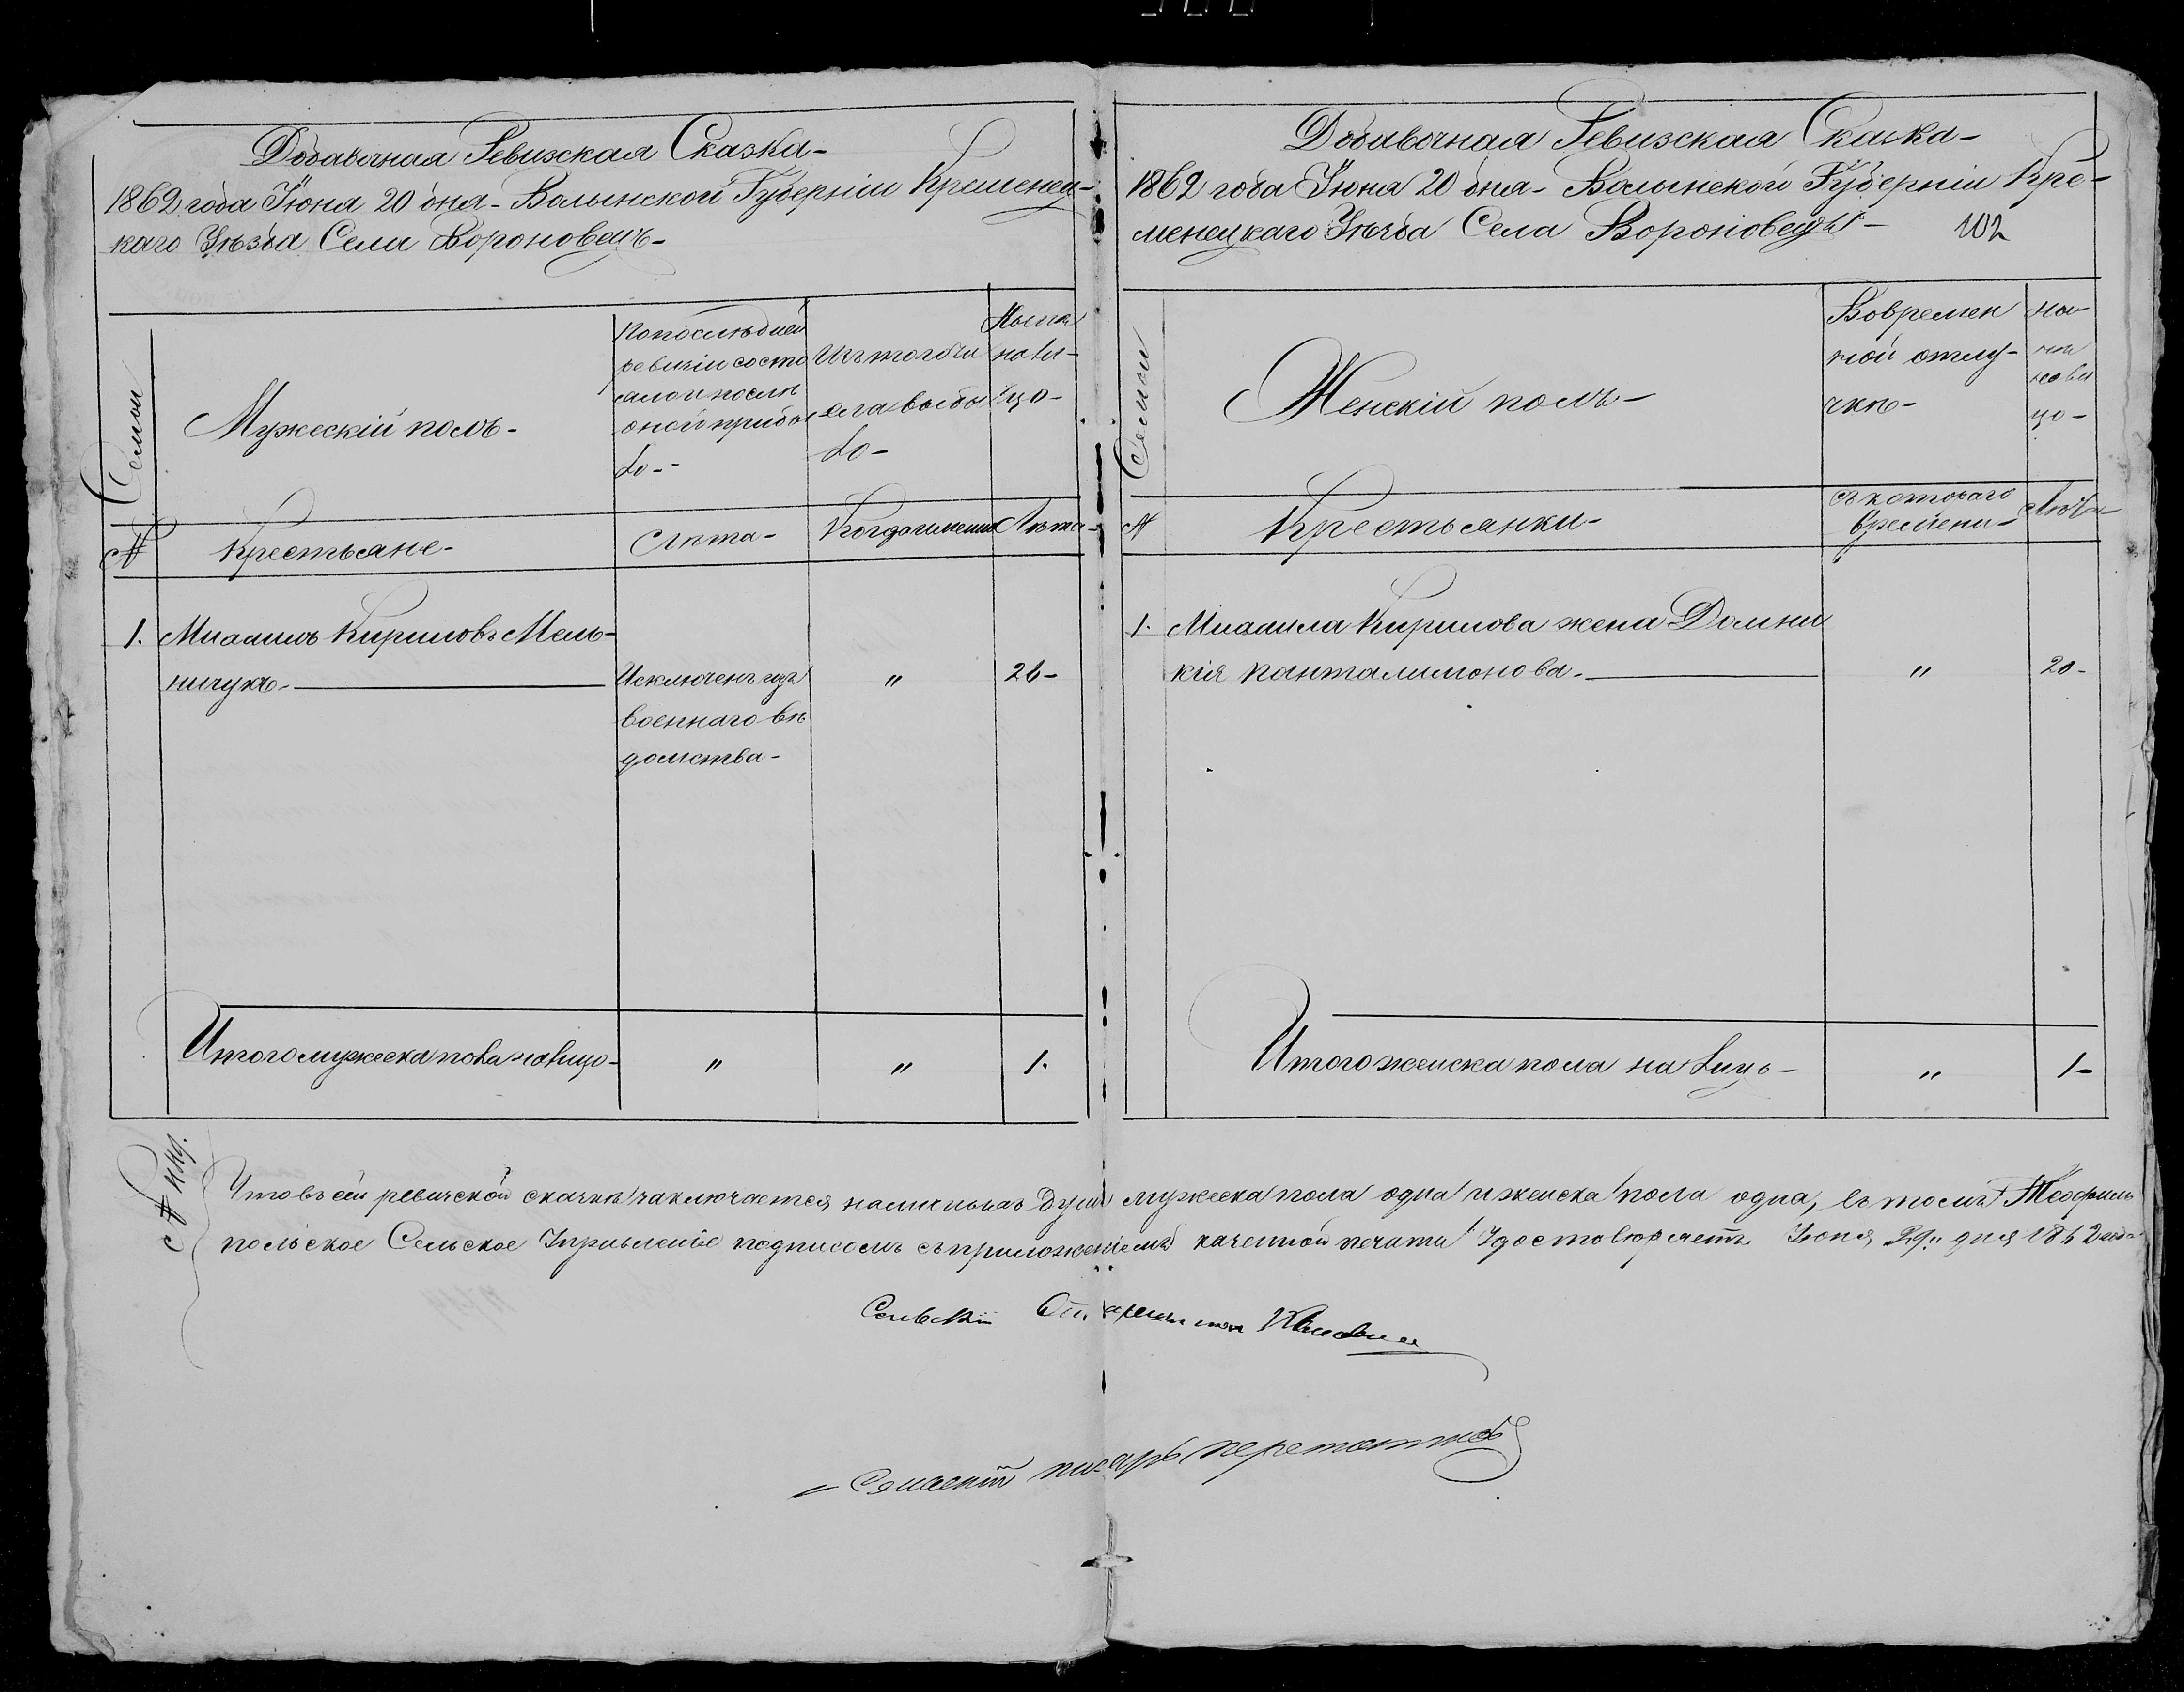 Добавочная Ревизская Сказка-
1862 года Іюня 20 дня - Волынской Губерніи Кременец-
каго Уѣзда Села Вороновецъ-
Семьи
Мужескій полъ-
Попослѣдней
ревизіи состо
ялои послѣ
оной прибы
ло--
Изъ того чи
сла выбы
ло-
Ныне
нали-
цо-
№
Крестьяне-
Лѣта-
Когда именно
Лѣта-
1. Михаилъ Кириловъ Мель-
ничукъ-
Исключенъ изъ
военнаго вѣ
домства-
"
26-
Итого мужеска пола налицо-
"
"
1.
Добавочная Ревизская Сказка-
1862 года Іюня 20 дня - Волынской Губерніи Кре-
менецкаго Уѣзда Села Вороновецъ-
102
Семьи
Женскій полъ-
Вовремен
ной отлу-
чкѣ-
нали
цо-
№
Крестьянки-
съ котораго
времени-
Лѣта-
1. Михаила Кирилова жена Домни
кія Панталимонова.
"
20-
Итого женска пола на лицо-
"
1-
Что въ сей ревизской сказкѣ заключается наличныхъ душъ мужеска пола одна и женска пола одна, въ томъ Теофиль
польское Сельское Управленіе подписомъ съ приложеніемъ казенной печати удостовѣряетъ Іюня дня 1862 года
Сельскій Староста
Сельскій писарь